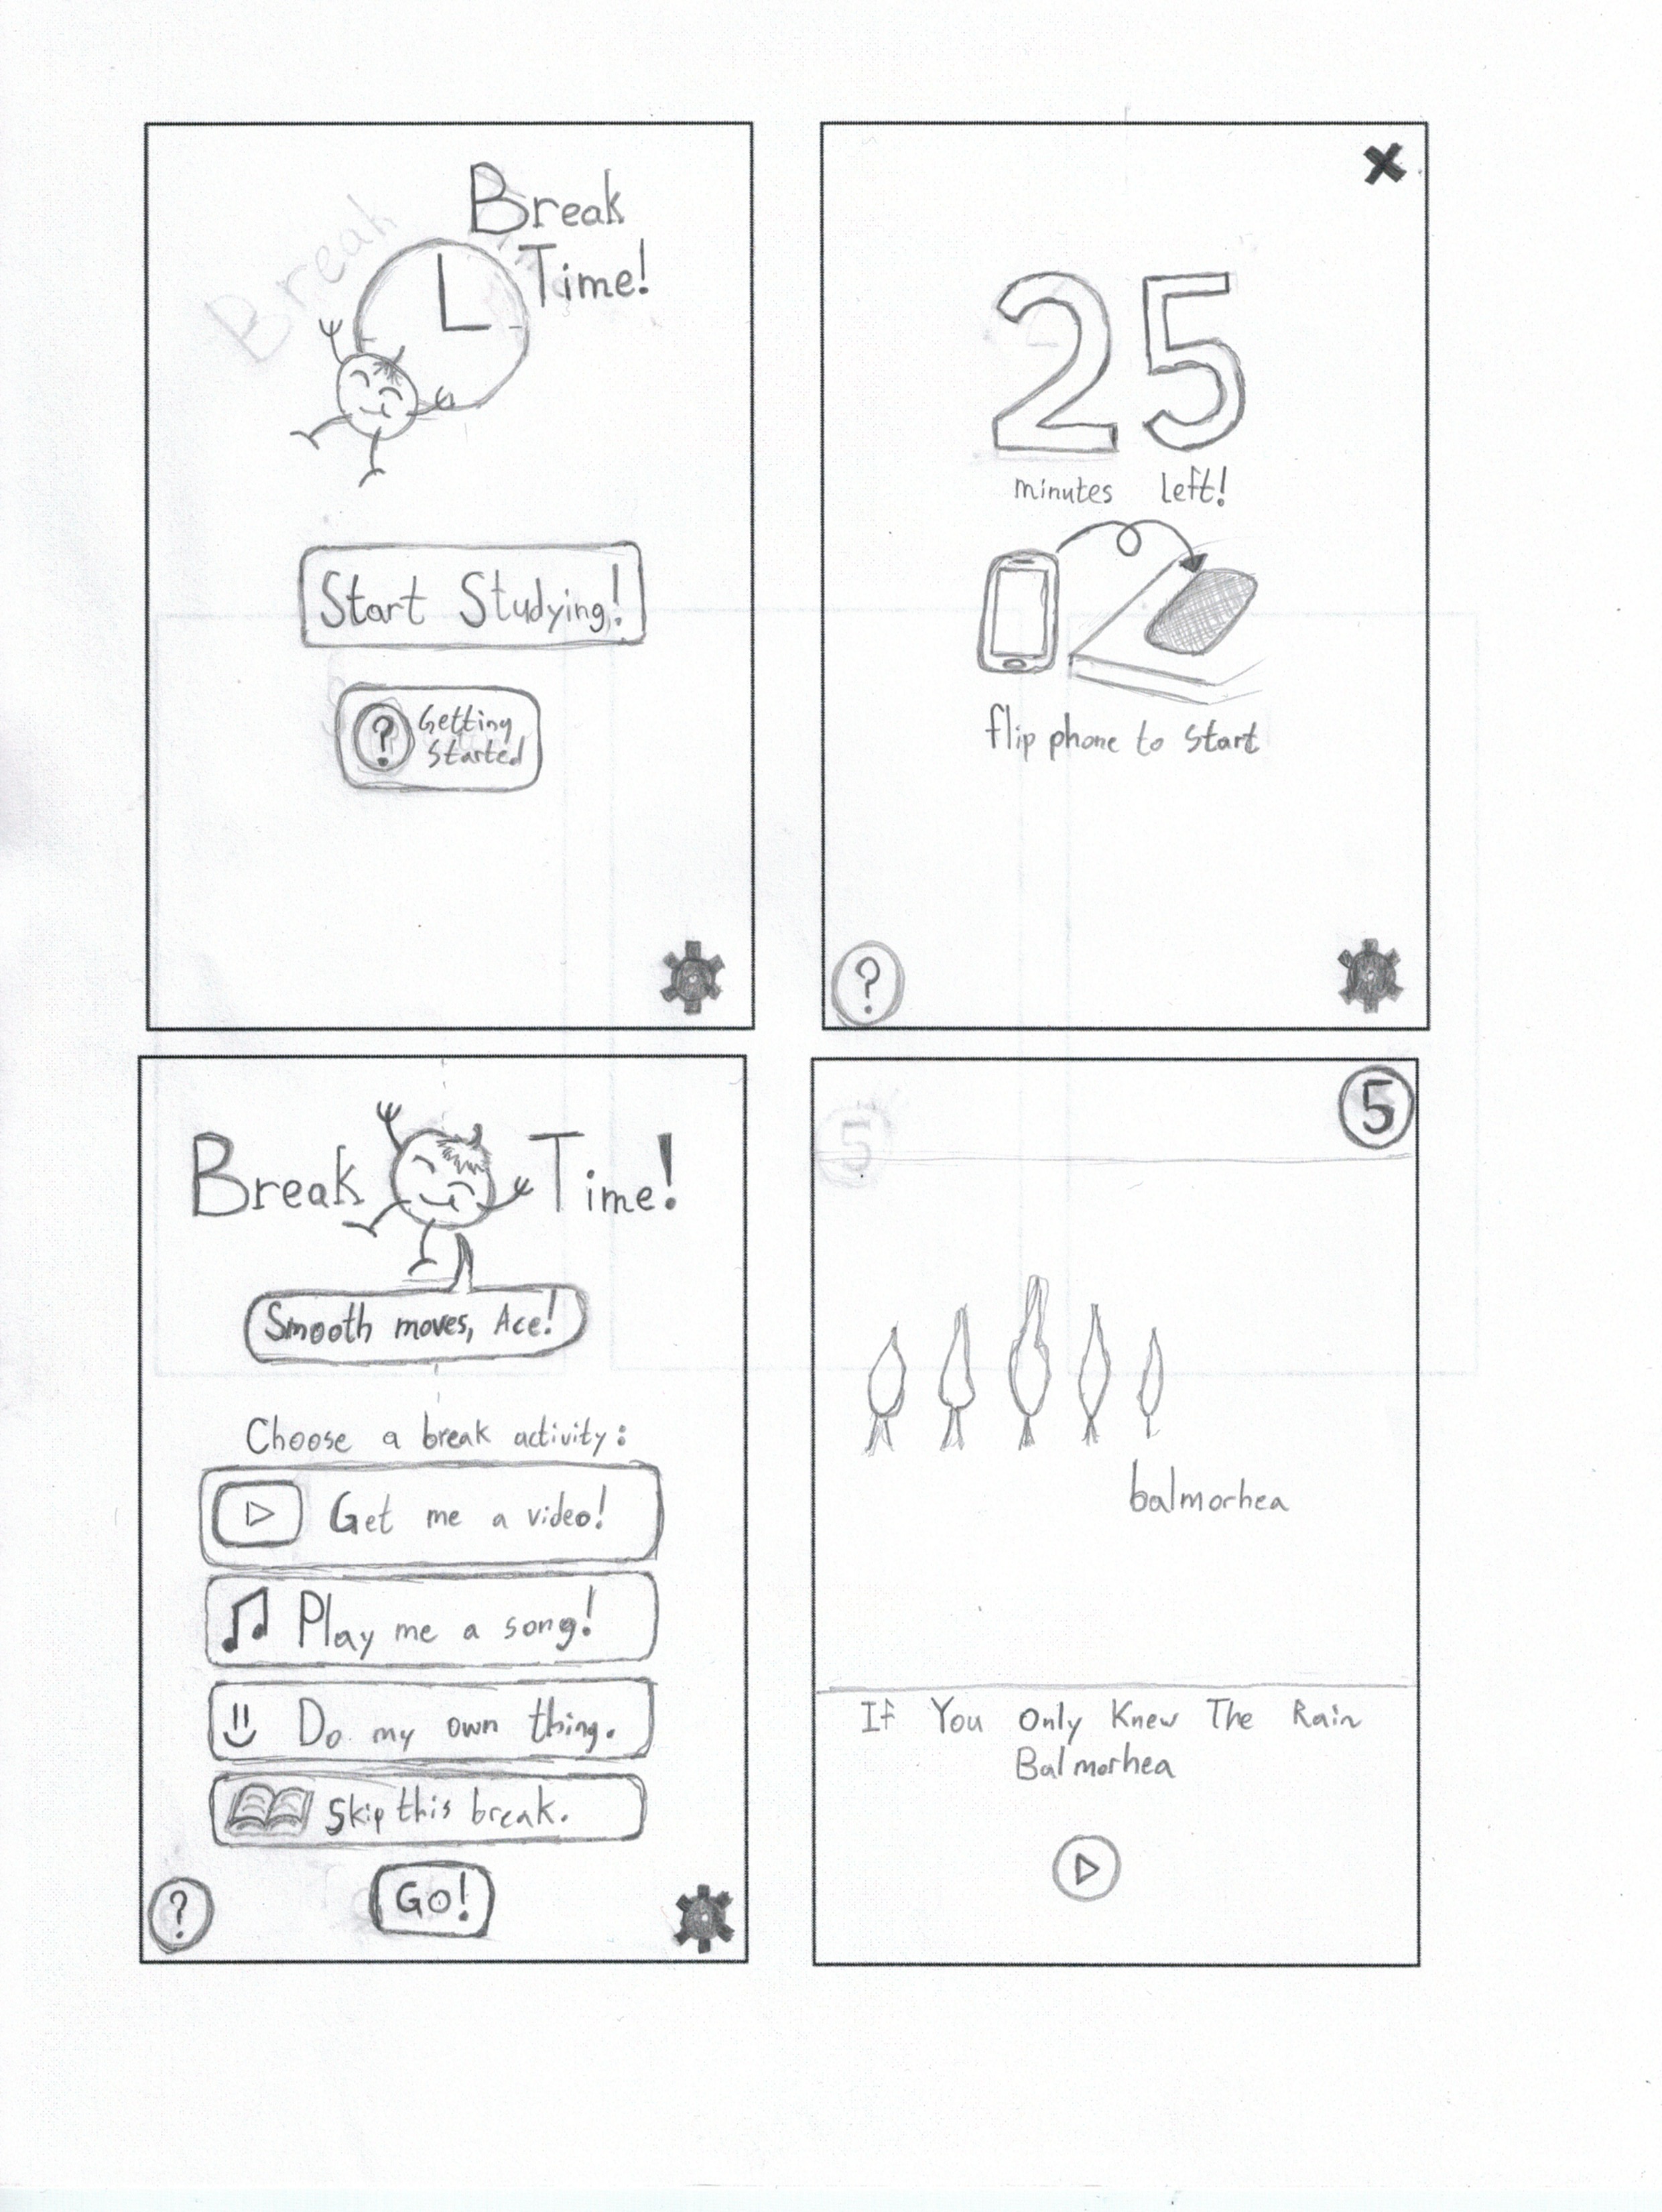 Break
Break
Time!
Start Studying!
?
Getting
Started
25
minutes left!
flip phone to start
?
Break Time!
Smooth moves, Ace!
Choose a break activity:
Get me a video!
Play me a song!
Do my own thing.
Skip this break.
Go!
?
5
5
balmorhea
If You Only Knew The Rain
Balmorhea